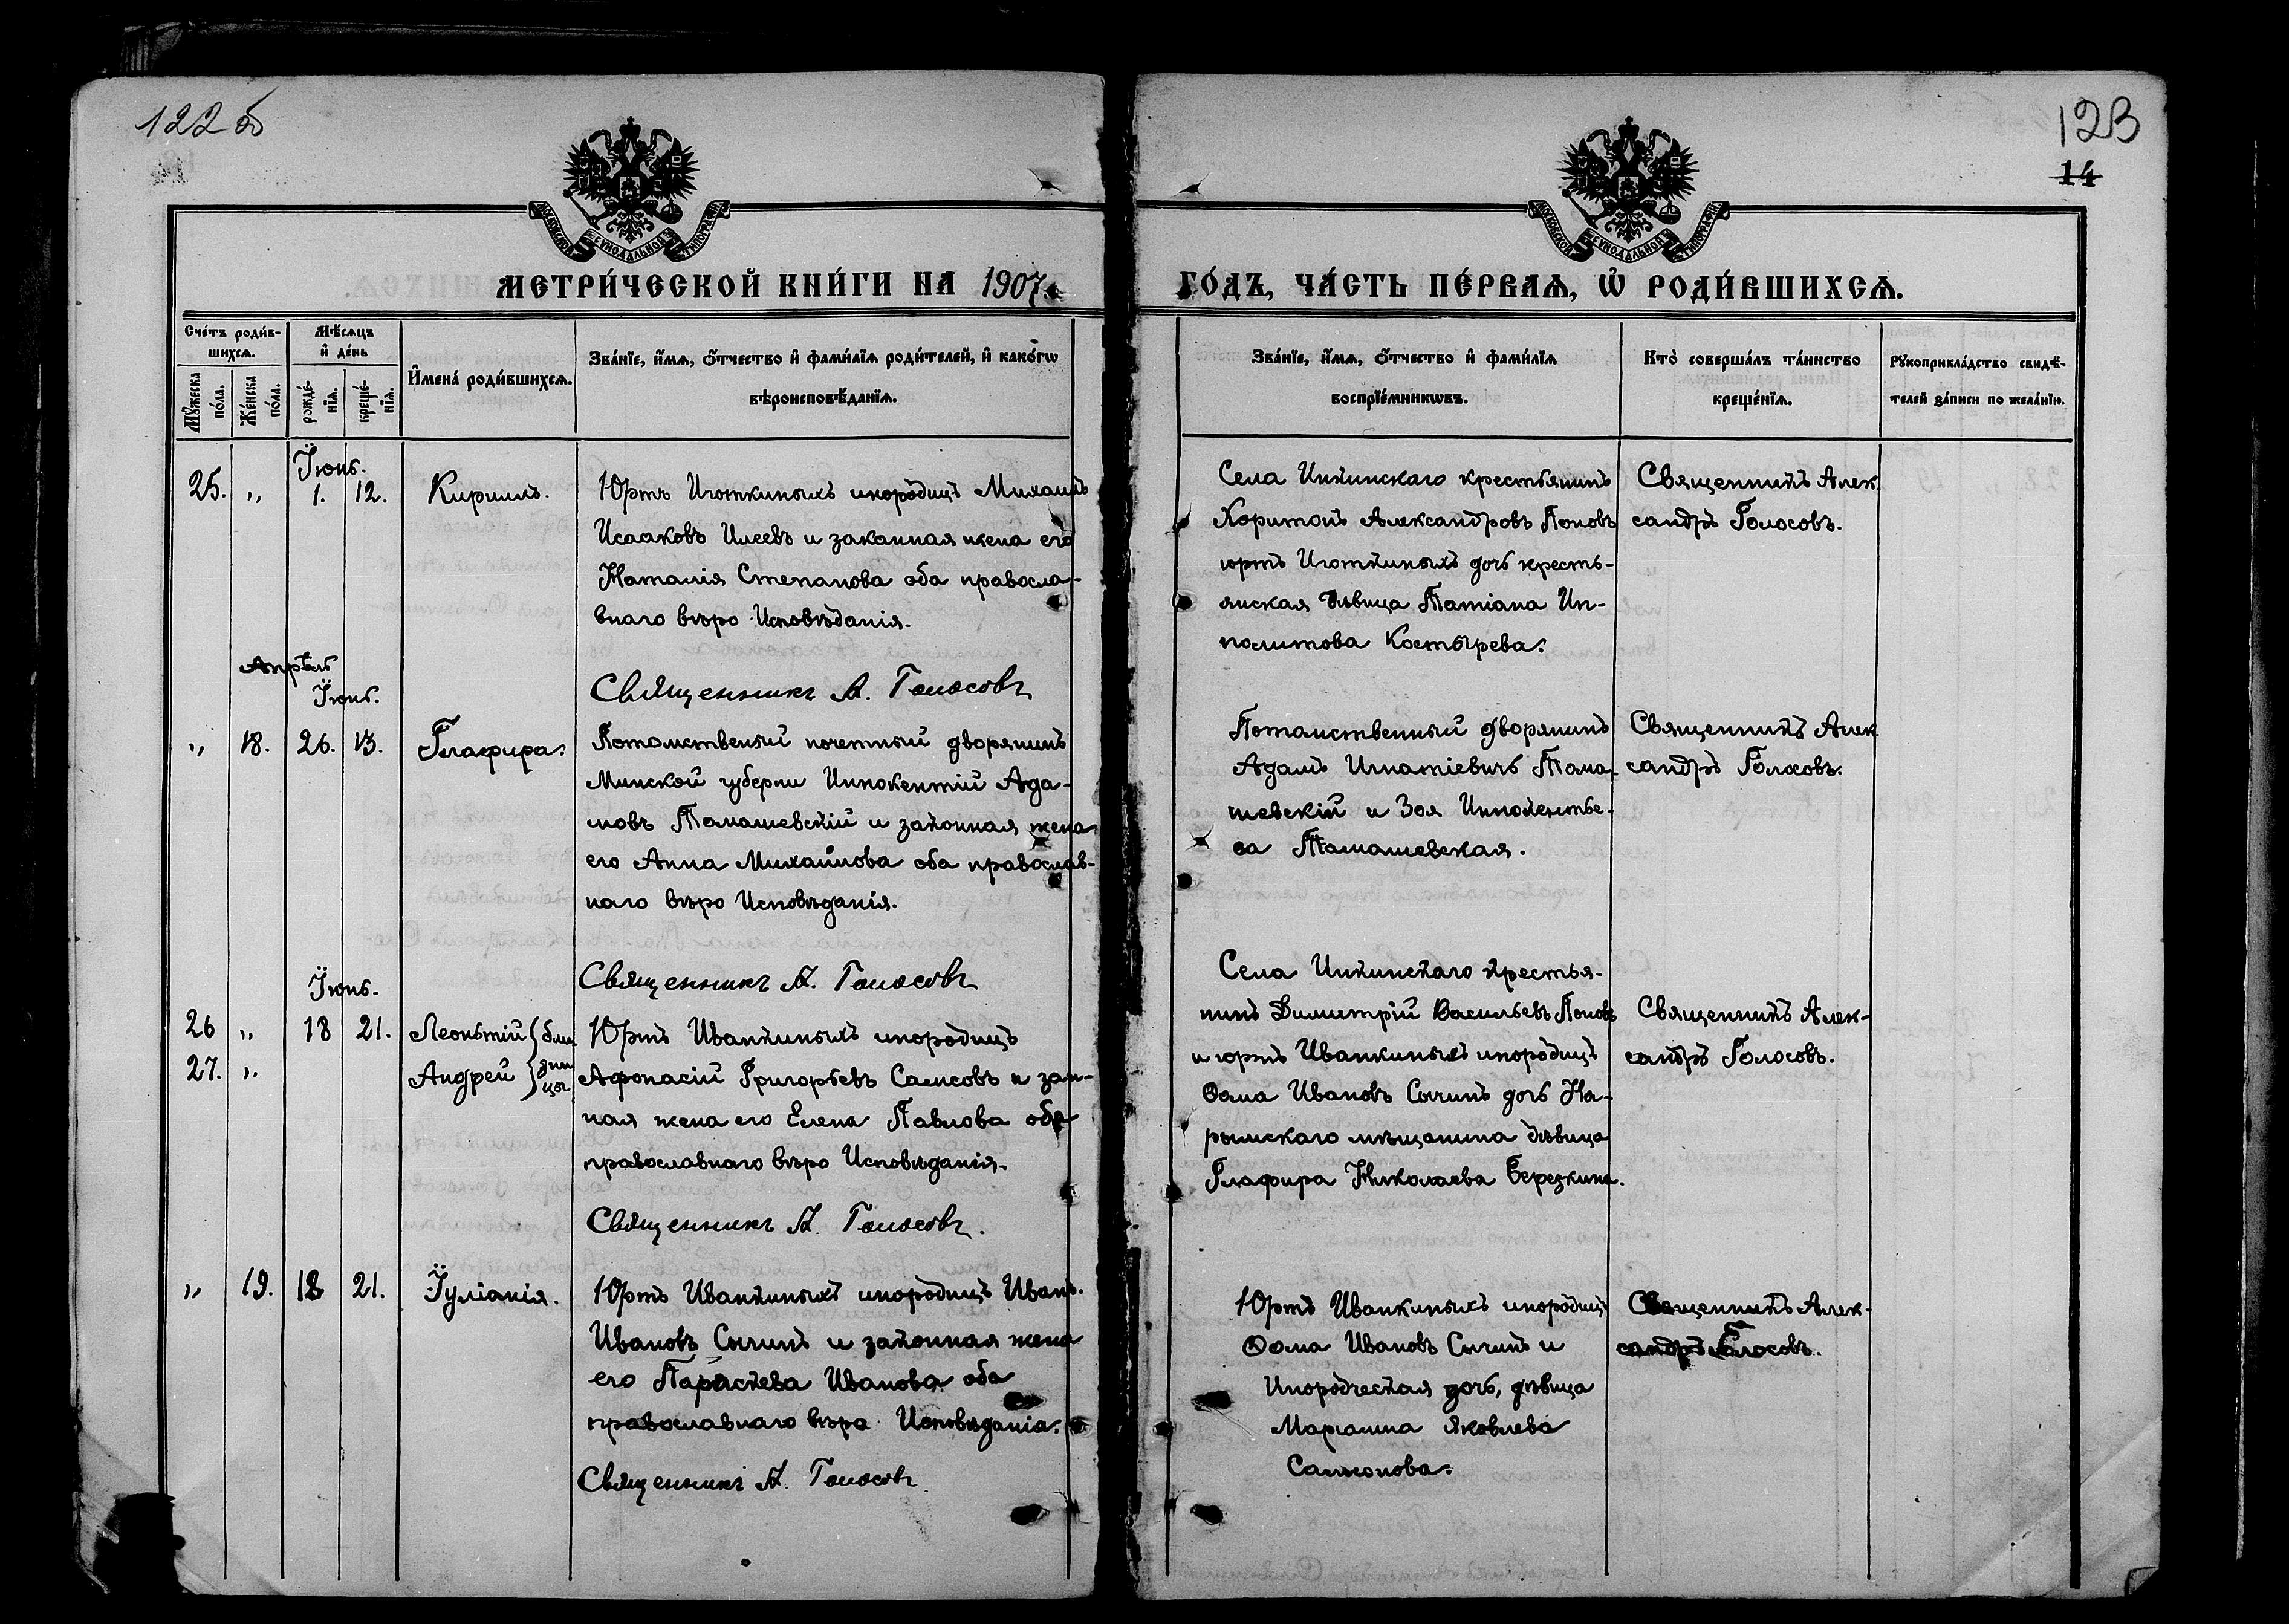 122 об
123
14
МОСКОВСКОЙ СѴНОДАЛЬНОЙ ТИПОГРАФІИ
МОСКОВСКОЙ СѴНОДАЛЬНОЙ ТИПОГРАФІИ
МЕТРИ́ЧЕСКОЙ КНИ́ГИ НА 1907
ГО́ДЪ, ЧА́СТЬ ПЕ́РВАѦ, Ѡ҆ РОДИ́ВШИХСѦ.
Сче́тъ роди́в-
шихсѧ.
Мѣ́сѧцъ
и҆ де́нь
Мꙋ́жеска по́ла.
Же́нска по́ла.
рожде́-
нїѧ.
креще́-
нїѧ.
И҆мена̀ роди́вшихсѧ.
Зва́нїе, и҆́мѧ, о҆́тчество и҆ фами́лїѧ роди́телей, и҆ како́гѡ
вѣроисповѣ́данїѧ.
Зва́нїе, и҆́мѧ, о҆́тчество и҆ фами́лїѧ
воспрїе́мникѡвъ.
Кто̀ соверша́лъ та́инство
креще́нїѧ.
Рꙋкоприкла́дство свидѣ́-
телей за́писи по жела́нїю.
Їюнь.
25. „ 1. 12. Кириллъ.
Юртъ Иготкиныхъ инородецъ Михаилъ
Исааковъ Илеевъ и законная жена его
Наталія Степанова оба правосла-
внаго вѣро Исповѣданія.
Священникъ А. Голосовъ
Села Инкинскаго крестьянинъ
Харитонъ Александровъ Поповъ
юртъ Иготкиныхъ дочь кресть-
янская дѣвица Татіана Ип-
политова Костырева.
Священникъ Алек
сандръ Голосовъ.
Апрѣль
Їюнь.
„ 18. 26. 13. Глафира.
Потомственый почетный дворянинъ
Минской губерни Иннокентій Ада-
мовъ Томашевскій и законная жена
его Анна Михайлова оба православ-
наго вѣро Исповѣданія.
Священникъ А. Голосовъ
Потомственный дворянинъ
Адамъ Игнатіевичъ Тома-
шевскій и Зоя Иннокентье-
ва Томашевская.
Священникъ Алек
сандръ Голосовъ.
Їюнь.
26 „ 18 21. Леонтій близ
27. „ Андрей нецы
Юртъ Иванкиныхъ инородецъ
Афонасій Григорьевъ Саисовъ и зак-
ная жена его Елена Павлова оба
православнаго вѣро Исповѣданія.
Священникъ А. Голосовъ.
Села Инкинскаго крестья-
нинъ Димитрій Васильевъ Поповъ
и юртъ Иванкиныхъ инородецъ
Ѳома Ивановъ Сычинъ дочь На-
рымскаго мѣщанина дѣвица
Глафира Николаева Березкина.
Священникъ Алек-
сандръ Голосовъ.
„ 19. 18 21. Їуліанія.
Юртъ Иванкиныхъ инородецъ Иванъ.
Ивановъ Сычинъ и законная жена
его Параскева Иванова оба
православнаго вѣра Исповѣданія.
Священникъ А. Голосовъ
Юртъ Иванкиныхъ инородецъ
Ѳома Ивановъ Сычинъ и
Инородческая дочь, дѣвица
Маріамна Яковлева
Самсонова.
Священникъ Алек-
сандръ Голосовъ.